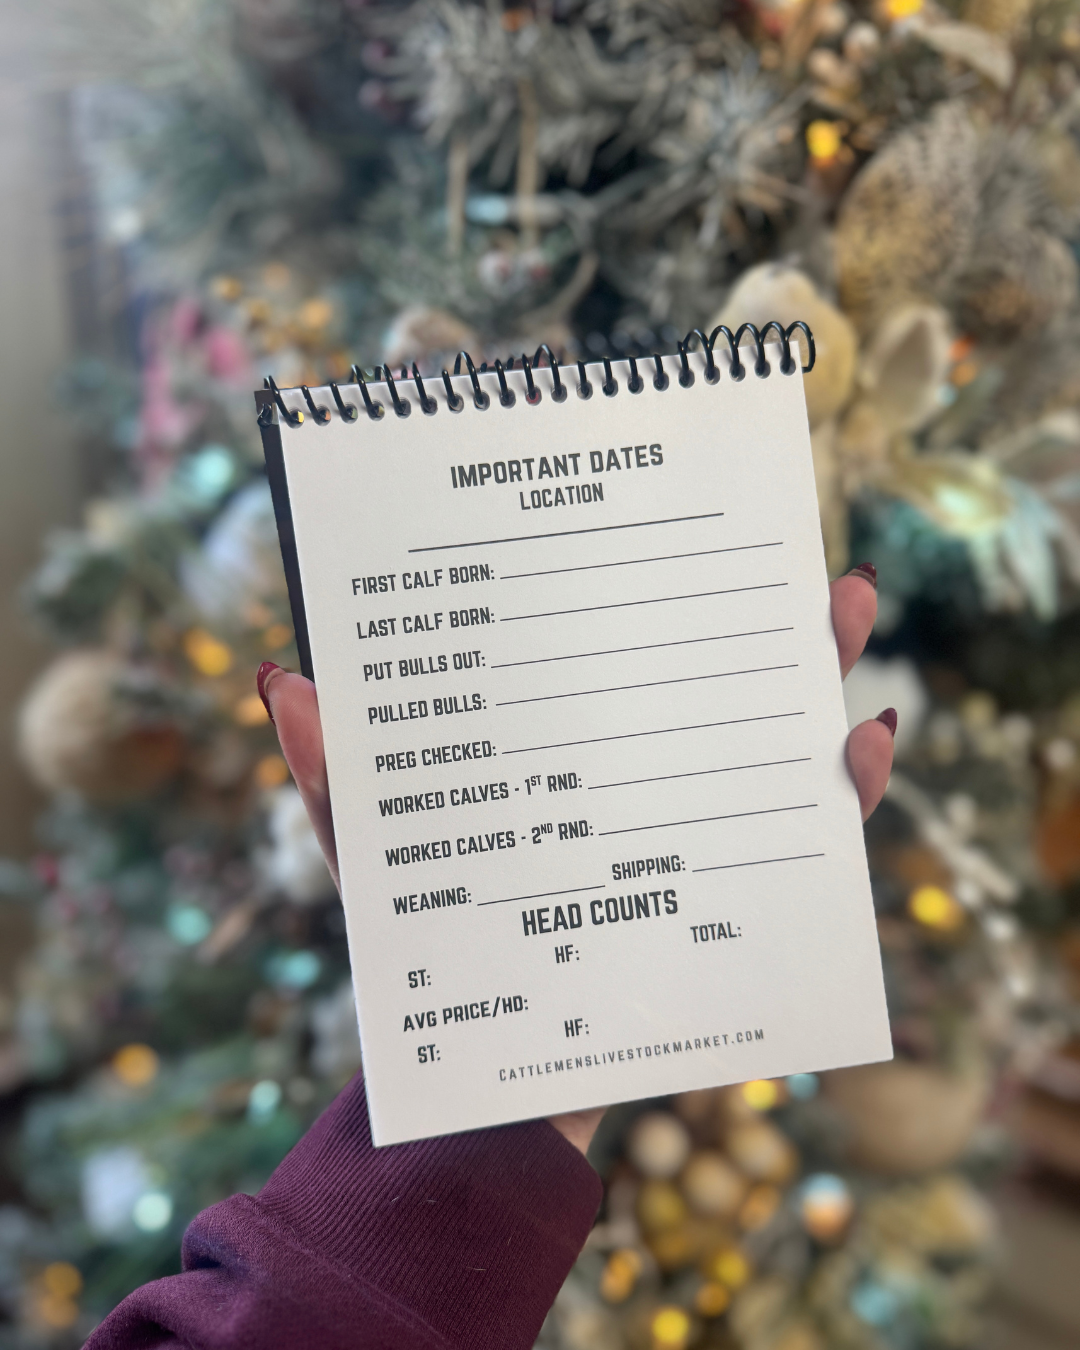 IMPORTANT DATES
LOCATION
FIRST CALF BORN:
LAST CALF BORN:
PUT BULLS OUT:
PULLED BULLS:
PREG CHECKED:
WORKED CALVES - 1ST RND:
WORKED CALVES - 2ND RND:
WEANING: SHIPPING:
HEAD COUNTS
ST: HF: TOTAL:
AVG PRICE/HD:
ST: HF:
CATTLEMENSLIVESTOCKMARKET.COM